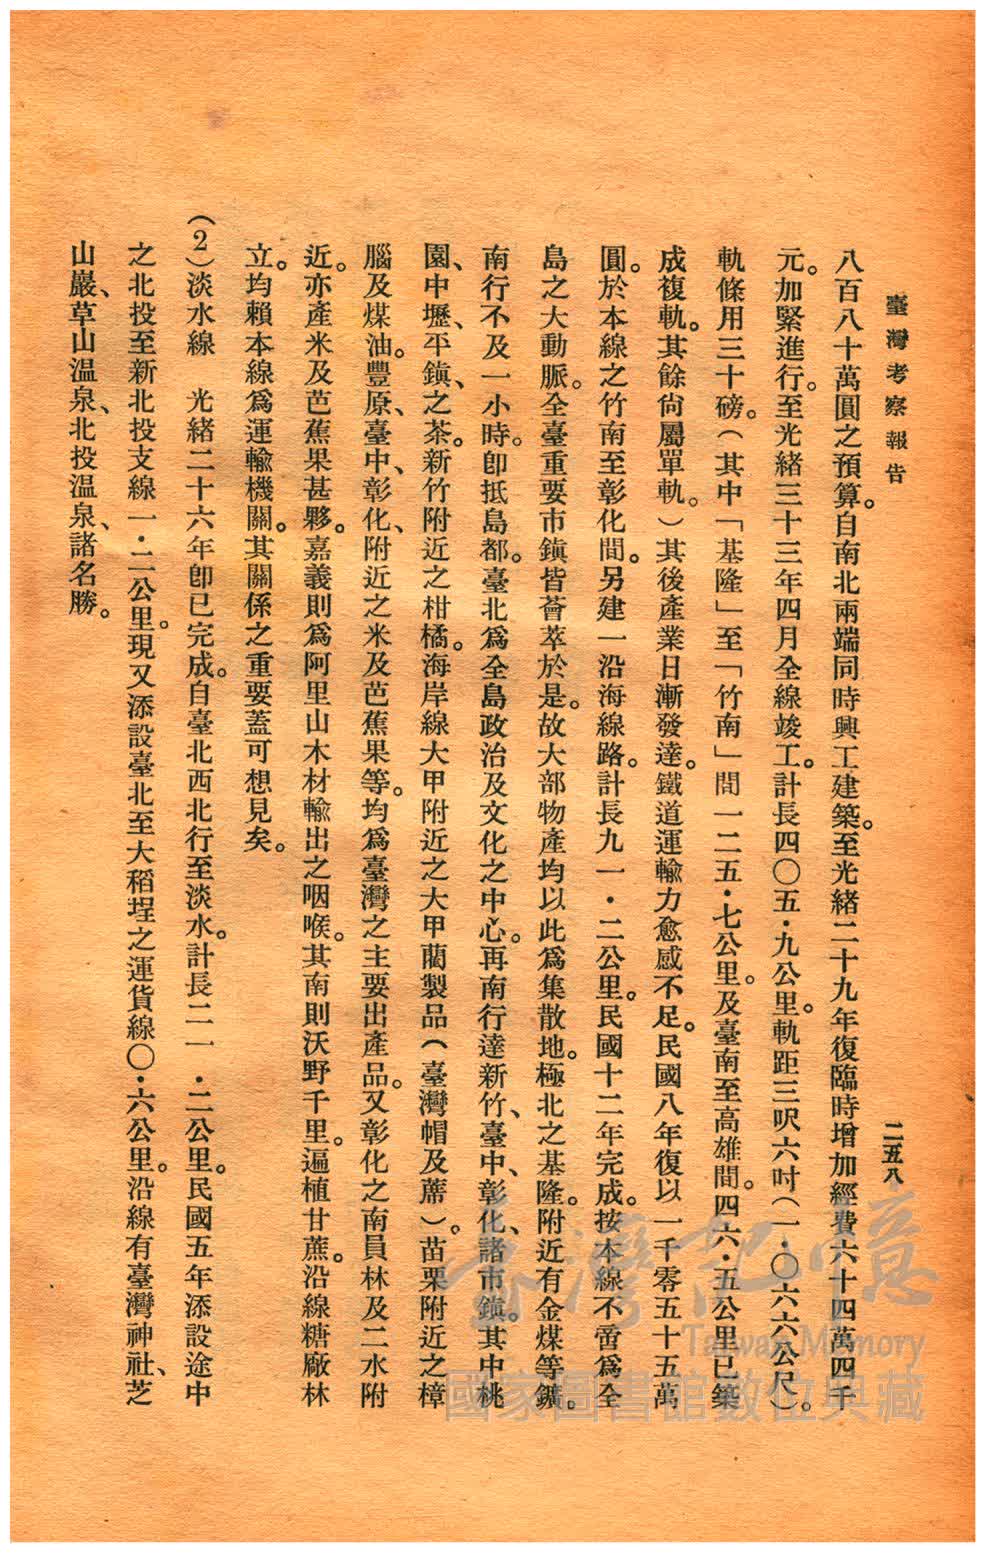 臺灣考察報告
二五八
八百八十萬圓之預算。自南北兩端同時興工建築。至光緒二十九年復臨時增加經費六十四萬四千
元。加緊進行。至光緒三十三年四月全線竣工。計長四〇五・九公里。軌距三呎六吋(一・〇六六公尺)。
軌條用三十磅。(其中「基隆」至「竹南」間一二五・七公里。及臺南至高雄間。四六・五公里已築
成複軌。其餘尙屬單軌。)其後產業日漸發達。鐵道運輸力愈感不足。民國八年復以一千零五十五萬
圓。於本線之竹南至彰化間。另建一沿海線路。計長九一・二公里。民國十二年完成。按本線不啻爲全
島之大動脈。全臺重要市鎭皆薈萃於是。故大部物產均以此爲集散地。極北之基隆。附近有金煤等鑛。
南行不及一小時。卽抵島都。臺北爲全島政治及文化之中心。再南行達新竹、臺中、彰化、諸市鎭。其中桃
園、中壢、平鎭、之茶。新竹附近之柑橘。海岸線大甲附近之大甲藺製品(臺灣帽及蓆)。苗栗附近之樟
腦及煤油。豐原、臺中、彰化、附近之米及芭蕉果等。均爲臺灣之主要出產品。又彰化之南員林及二水附
近。亦產米及芭蕉果甚夥。嘉義則爲阿里山木材輸出之咽喉。其南則沃野千里。遍植甘蔗。沿線糖廠林
立。均賴本線爲運輸機關。其關係之重要蓋可想見矣。
(2)淡水線　光緒二十六年卽已完成。自臺北西北行至淡水。計長二一・二公里。民國五年添設途中
之北投至新北投支線一・二公里。現又添設臺北至大稻埕之運貨線〇・六公里。沿線有臺灣神社、芝
山巖、草山溫泉、北投溫泉、諸名勝。
臺灣記憶
Taiwan Memory
國家圖書館數位典藏